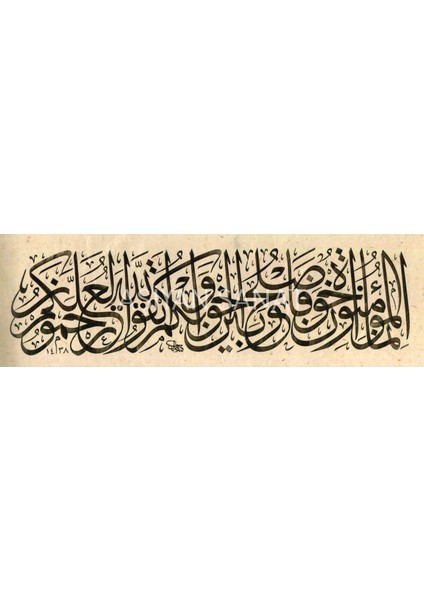 إنما المؤمنون إخوة فأصلحوا بين أخويكم واتقوا الله لعلكم ترحمون
١٤٣٨